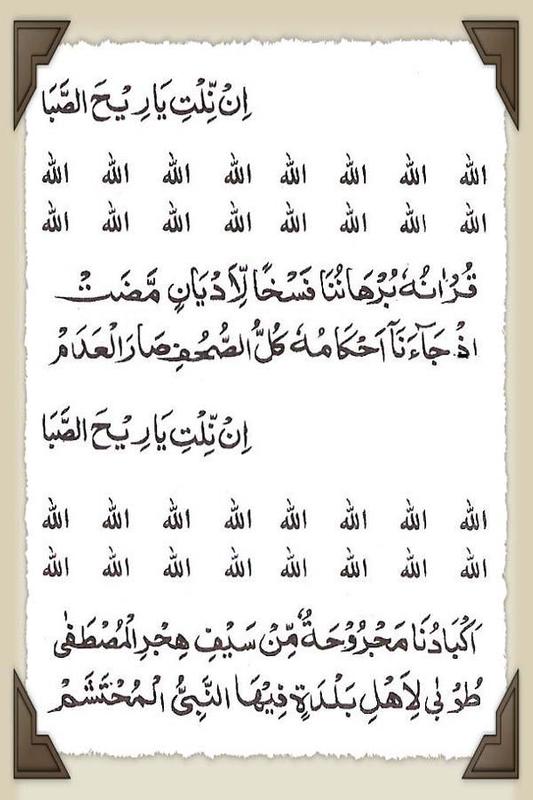 اِنْ نِّلْتِ يَا رِيْحَ الصَّبَا
الله الله الله الله الله الله الله الله
الله الله الله الله الله الله الله الله
قُرْاٰنُهٗ بُرْهَانُنَا فَسْخًا لِّاَدْيَانٍ مَّضَتْ
اِذْ جَآءَنَآ اَحْكَامُهٗ كُلُّ الصُّحُفِ صَارَ الْعَدَمْ
اِنْ نِّلْتِ يَا رِيْحَ الصَّبَا
الله الله الله الله الله الله الله الله
الله الله الله الله الله الله الله الله
اَكْبَادُنَا مَجْرُوْحَةٌ مِّنْ سَيْفِ هِجْرِ الْمُصْطَفٰى
طُوْبٰى لِاَهْلِ بَلْدَةٍ فِيْهَا النَّبِىُّ الْمُحْتَشَمْ